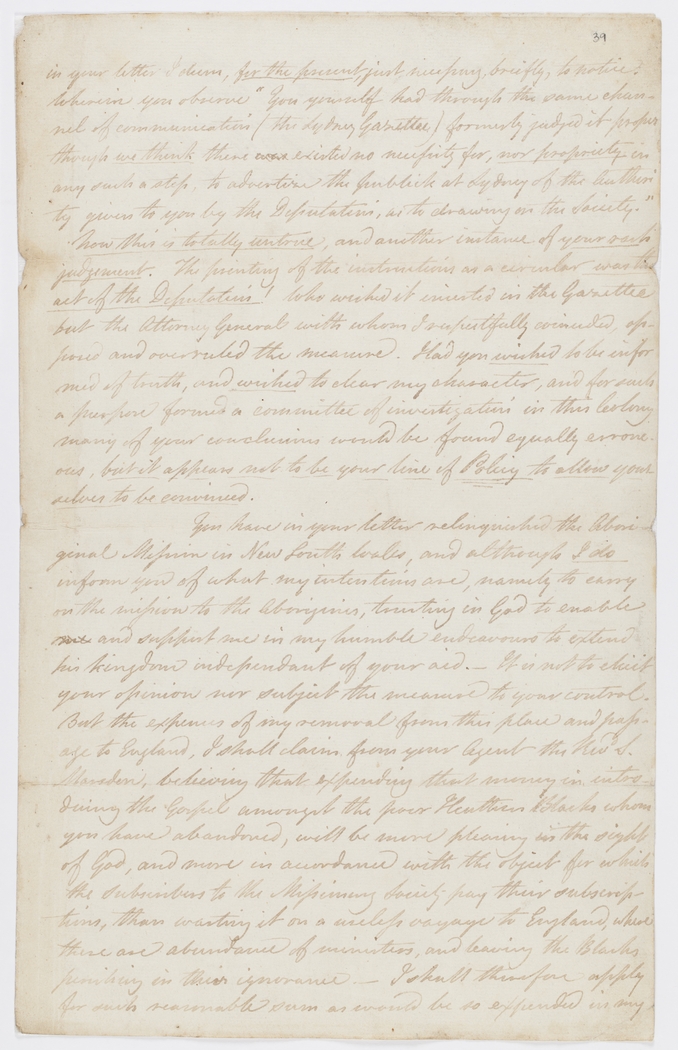 39
in your letter I deem, for the present, just necessary, briefly, to notice:
Wherein you observe "You yourself had through the same chan-
nel of communication (the Sydney Gazettee) formerly judged it proper
though we think there was existed no necessity for, nor propriety in
any such a step, to advertise the publick at Sydney of the Authori
ty given to you by the Deputation, as to drawing on the Society."
Now this is totally untrue, and another instance of your rash
judgement. The printing of the instructions as a circular was the
act of the Deputation! Who wished it inserted in the Gazettee
but the Attorney General with whom I respectfully coincided, op-
posed and overruled the measure. Had you wished to be infor
med of truth, and wished to clear my character, and for such
a purpose formed a committee of investigation in this Colony
many of your conclusions would be found equally errone-
ous, but it appears not to be your line of Policy to allow your
selves to be convinced.
You have in your letter relinquished the Abori-
ginal Mission in New South Wales, and although I do
inform you of what my intentions are, namely to carry
on the mission to the Aborigines, trusting in God to enable
me and support me in my humble endeavours to extend
his kingdom independant of your aid. — It is not to elicit
your opinion nor subject the measure to your control.
But the expences of my removal from this place and pass-
age to England, I shall claim from your Agent the Revd. S.
Marsden, believing that expending that money in intro-
ducing the Gospel amongst the poor Heathen Blacks whom
you have abandoned, will be more pleasing in the sight
of God, and more in accordance with the object for which
the subscribers to the Missionary Society pay their subscrip-
tions, than wasting it on a useless voyage to England, where
there are abundance of ministers, and leaving the Blacks
perishing in their ignorance. — I shall therefore apply
for such reasonable sum as would be so expended in my